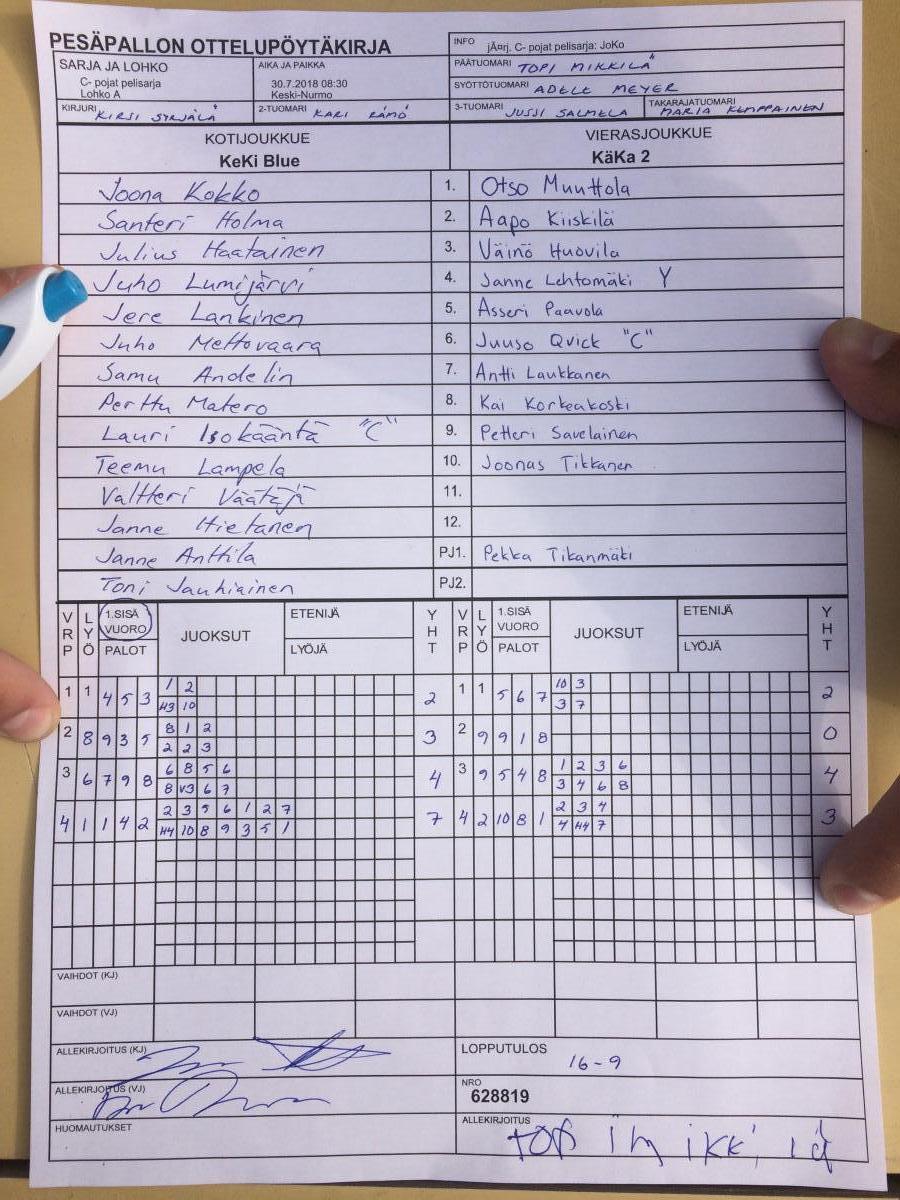 PESÄPALLON OTTELUPÖYTÄKIRJA
INFO jÃ¤rj. C- pojat pelisarja: JoKo
SARJA JA LOHKO
C- pojat pelisarja
Lohko A
AIKA JA PAIKKA
30.7.2018 08:30
Keski-Nurmo
PÄÄTUOMARI TOPI MIKKILÄ
SYÖTTÖTUOMARI ADELE MEYER
KIRJURI KIRSI SYRJÄLÄ
2-TUOMARI KARI RÄMÖ
3-TUOMARI JUSSI SALMELA
TAKARAJATUOMARI MARIA KEMPPAINEN
KOTIJOUKKUE VIERASJOUKKUE
KeKi Blue KäKa 2
Joona Kokko 1. Otso Muuttola
Santeri Holma 2. Aapo Kiiskilä
Julius Haatainen 3. Väinö Huovila
Juho Lumijärvi 4. Janne Lehtomäki Y
Jere Lankinen 5. Asseri Paavola
Juho Mettovaara 6. Juuso Qvick "C"
Samu Andelin 7. Antti Laukkanen
Perttu Matero 8. Kai Korkeakoski
Lauri Isokääntä "C" 9. Petteri Savelainen
Teemu Lampela 10. Joonas Tikkanen
Valtteri Väätäjä 11.
Janne Hietanen 12.
Janne Anttila PJ1. Pekka Tikanmäki
Toni Jauhiainen PJ2.
VRP LYÖ 1.SISÄ VUORO PALOT JUOKSUT ETENIJÄ LYÖJÄ YHT VRP LYÖ 1.SISÄ VUORO PALOT JUOKSUT ETENIJÄ LYÖJÄ YHT
1 1 4 5 3 1 2 2 1 1 5 6 7 10 3 2
H3 10 3 7
2 8 9 3 5 8 1 2 3 2 9 9 1 8 0
2 2 3
3 6 7 9 8 6 8 5 6 4 3 9 5 4 8 1 2 3 6 4
8 V3 6 7 3 4 6 8
4 1 1 4 2 2 3 5 6 1 2 7 7 4 2 10 8 1 2 3 4 3
H4 10 8 9 3 5 1 4 H4 7
VAIHDOT (KJ)
VAIHDOT (VJ)
ALLEKIRJOITUS (KJ)
LOPPUTULOS
16-9
ALLEKIRJOITUS (VJ)
NRO
628819
HUOMAUTUKSET
ALLEKIRJOITUS